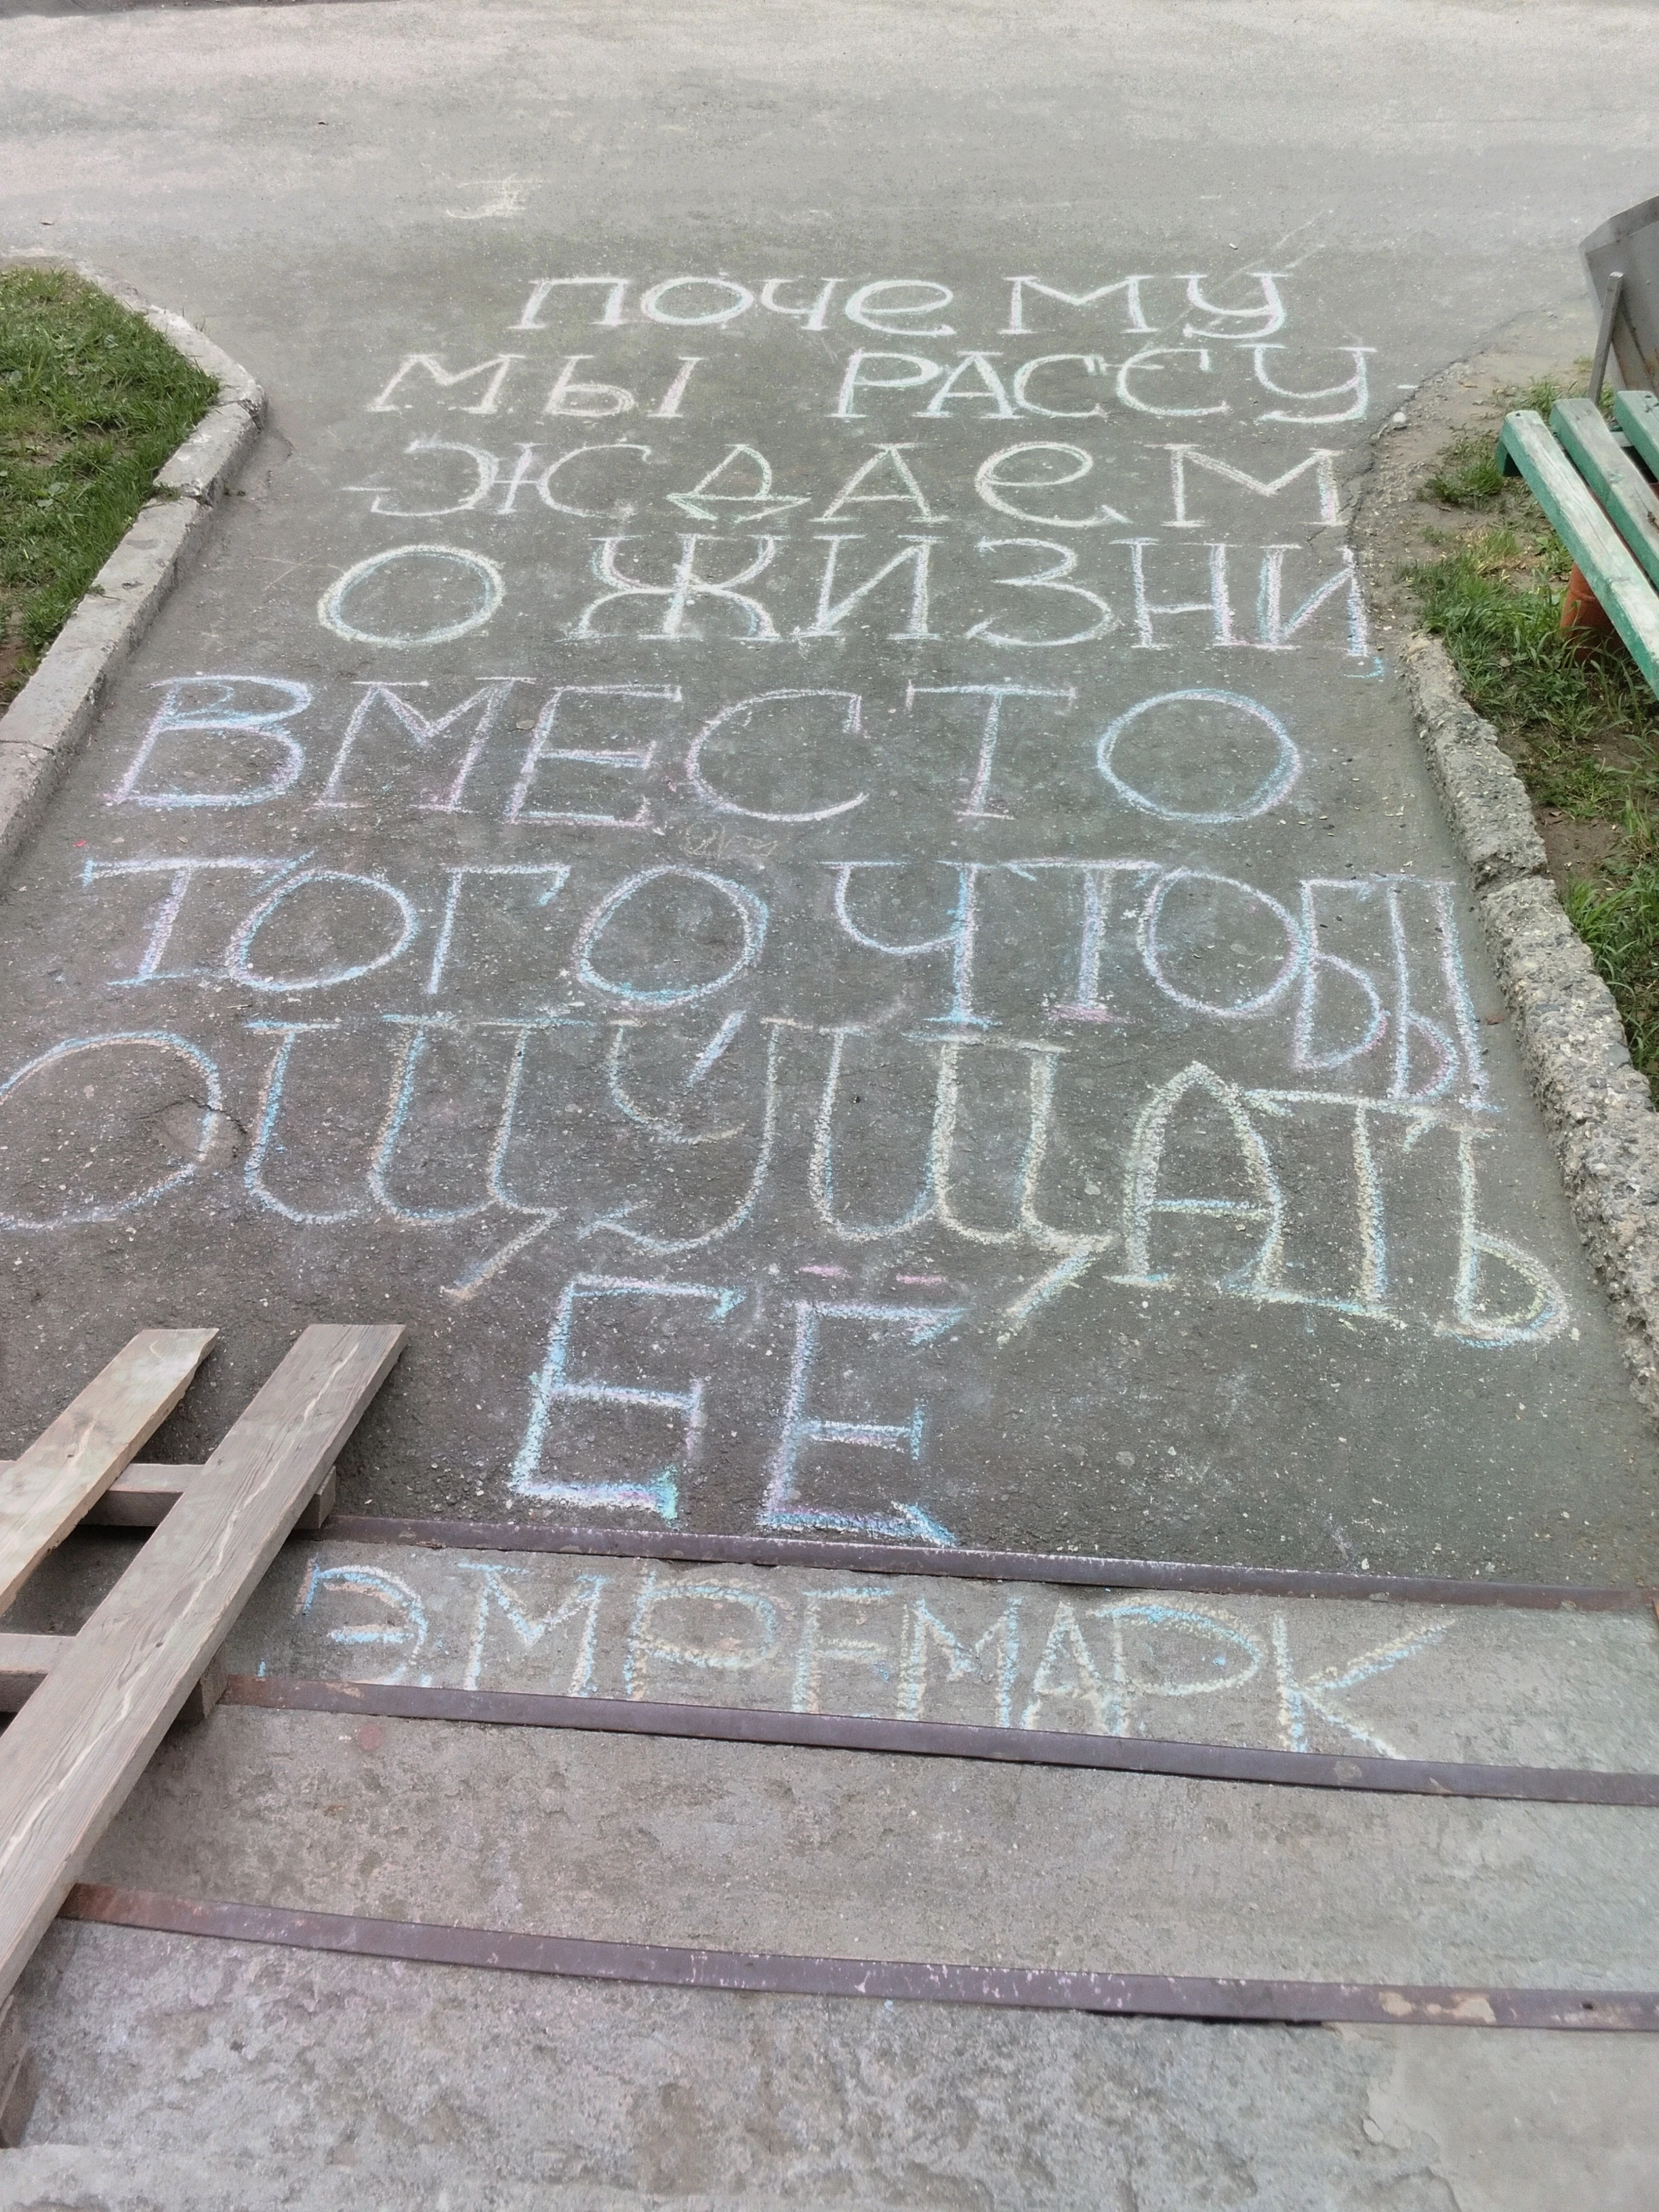 почему
мы РАССУ-
ЖДАеМ
О ЖИЗНИ,
ВМЕСТО
ТОГО ЧТОБЫ
ОЩУЩАТЬ
ЕЁ
Э.М.РЕМАРК